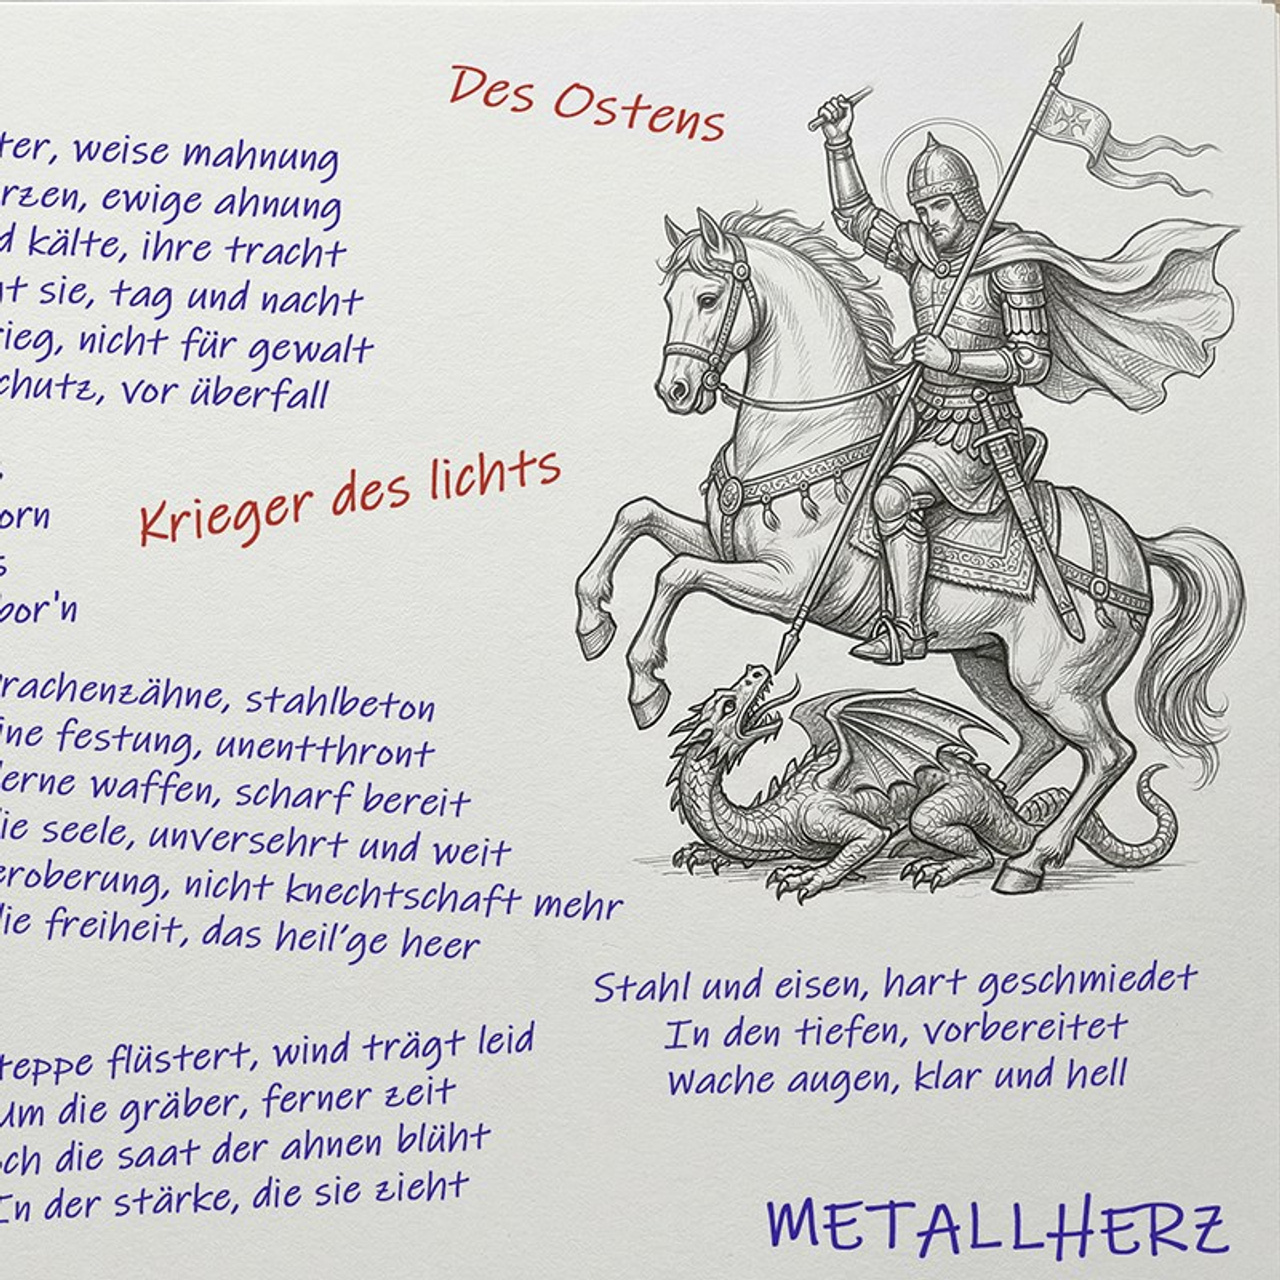 Des Ostens
ter, weise mahnung
rzen, ewige ahnung
d kälte, ihre tracht
t sie, tag und nacht
ieg, nicht für gewalt
chutz, vor überfall
Krieger des lichts
orn
s
bor'n
rachenzähne, stahlbeton
ine festung, unentthront
erne waffen, scharf bereit
ie seele, unversehrt und weit
eroberung, nicht knechtschaft mehr
die freiheit, das heil'ge heer
Stahl und eisen, hart geschmiedet
In den tiefen, vorbereitet
Wache augen, klar und hell
teppe flüstert, wind trägt leid
um die gräber, ferner zeit
ch die saat der ahnen blüht
In der stärke, die sie zieht
METALLHERZ